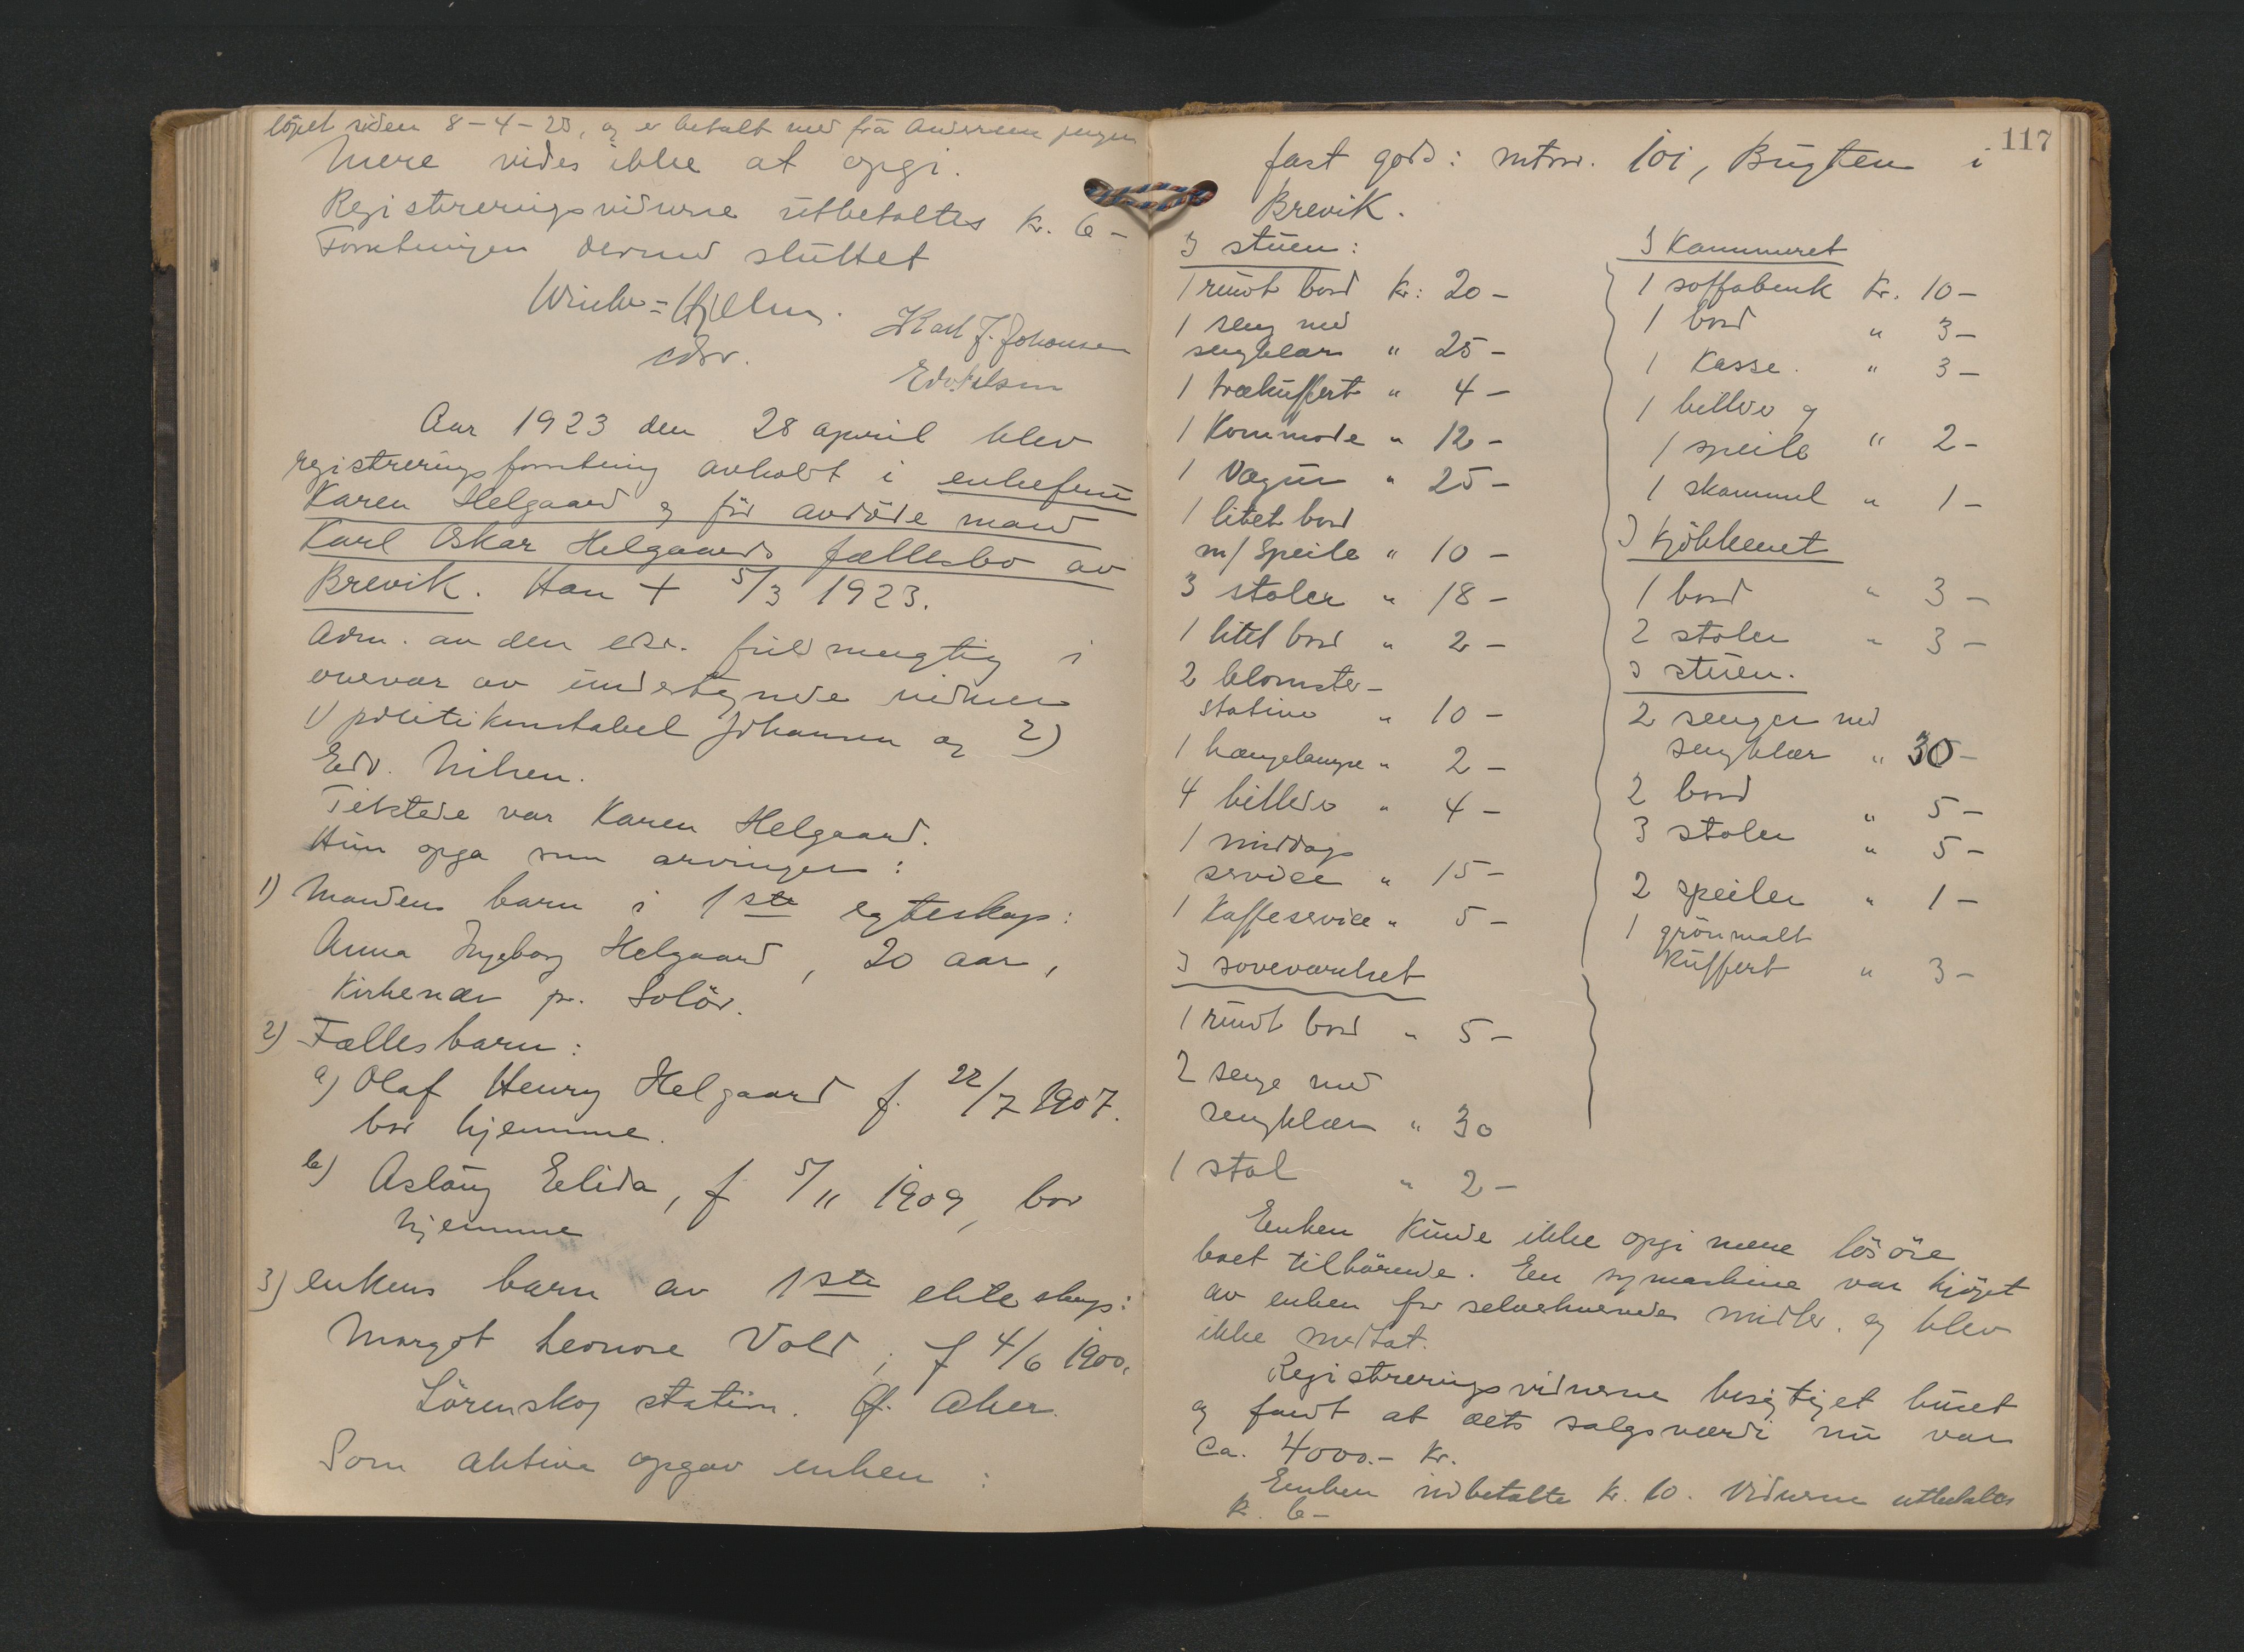 kjöpt siden 8-4-23, og er betalt med fra Andersens penger
Mere vides ikke at opgi.
Registreringsvidnerne utbetaltes kr. 6-
Forretningen dermed sluttet
Winche-Hjelm.
edsv.
Karl J. Johansen
Edv Nilsen
Aar 1923 den 28 april blev
registreringsforretning avholdt i enkefru
Karen Helgaard og für avdöde mand
Karl Oskar Helgaards fællesbo av
Brevik. Han + 5/3 1923.
Adm. av den edsv. fuldmegtig i
overvær av undertegnede vidner
1) politikonstabel Johansen og 2)
Edv. Nilsen.
Tilstede var Karen Helgaard.
Hun opga som arvinger:
1) Mandens barn i 1ste egteskap:
Anna Ingeborg Helgaard, 20 aar,
Kirkenær pr. Solör.
2) Fællesbarn:
a) Olaf Henry Helgaard f. 22/7 1907.
bor hjemme.
b) Aslaug Elida, f 5/11 1909, bor
hjemme
3) enkens barn av 1ste ekteskap:
Margot Leonore Vold, f 4/6 1900.
Lörenskog station. Ø. Aker.
Som aktiva opgav enken:
117
fast gods: mtnr. 101, Bugten i
Brevik.
I stuen:
1 rundt bord kr: 20-
1 seng med
sengklær " 25-
1 trækuffert " 4-
1 Kommode " 12-
1 Vægur " 25-
1 litet bord
m/ Speile " 10-
3 stoler " 18-
1 litet bord " 2-
2 blomster-
stativer " 10-
1 hængelampe " 2-
4 billeder " 4-
1 middags
service " 15-
1 Kaffeservice " 5-
I soveværelset
1 rundt bord " 5-
2 senge med
sengklær " 30
1 stol " 2-
I Kammeret
1 soffabenk kr. 10-
1 bord " 3-
1 Kasse. " 3-
1 billede og
1 speile " 2-
1 skammel " 1-
I Kjökkenet
1 bord " 3-
2 stoler " 3-
I stuen.
2 senger med
sengklær " 30-
2 bord " 5-
3 stoler " 5-
2 speiler " 1-
1 grönmalt
Kuffert " 3-
Enken kunde ikke opgi mere lösöre
boet tilhörende. En symaskine var kjöpt
av enken for selverhvervede midler. og blev
ikke medtat.
Registreringsvidnerne besigtiget huset
og fandt at dets salgsværdi nu var
ca. 4000.- kr.
Enken indbetalte kr. 10. Vidnerne utbetaltes
kr. 6-